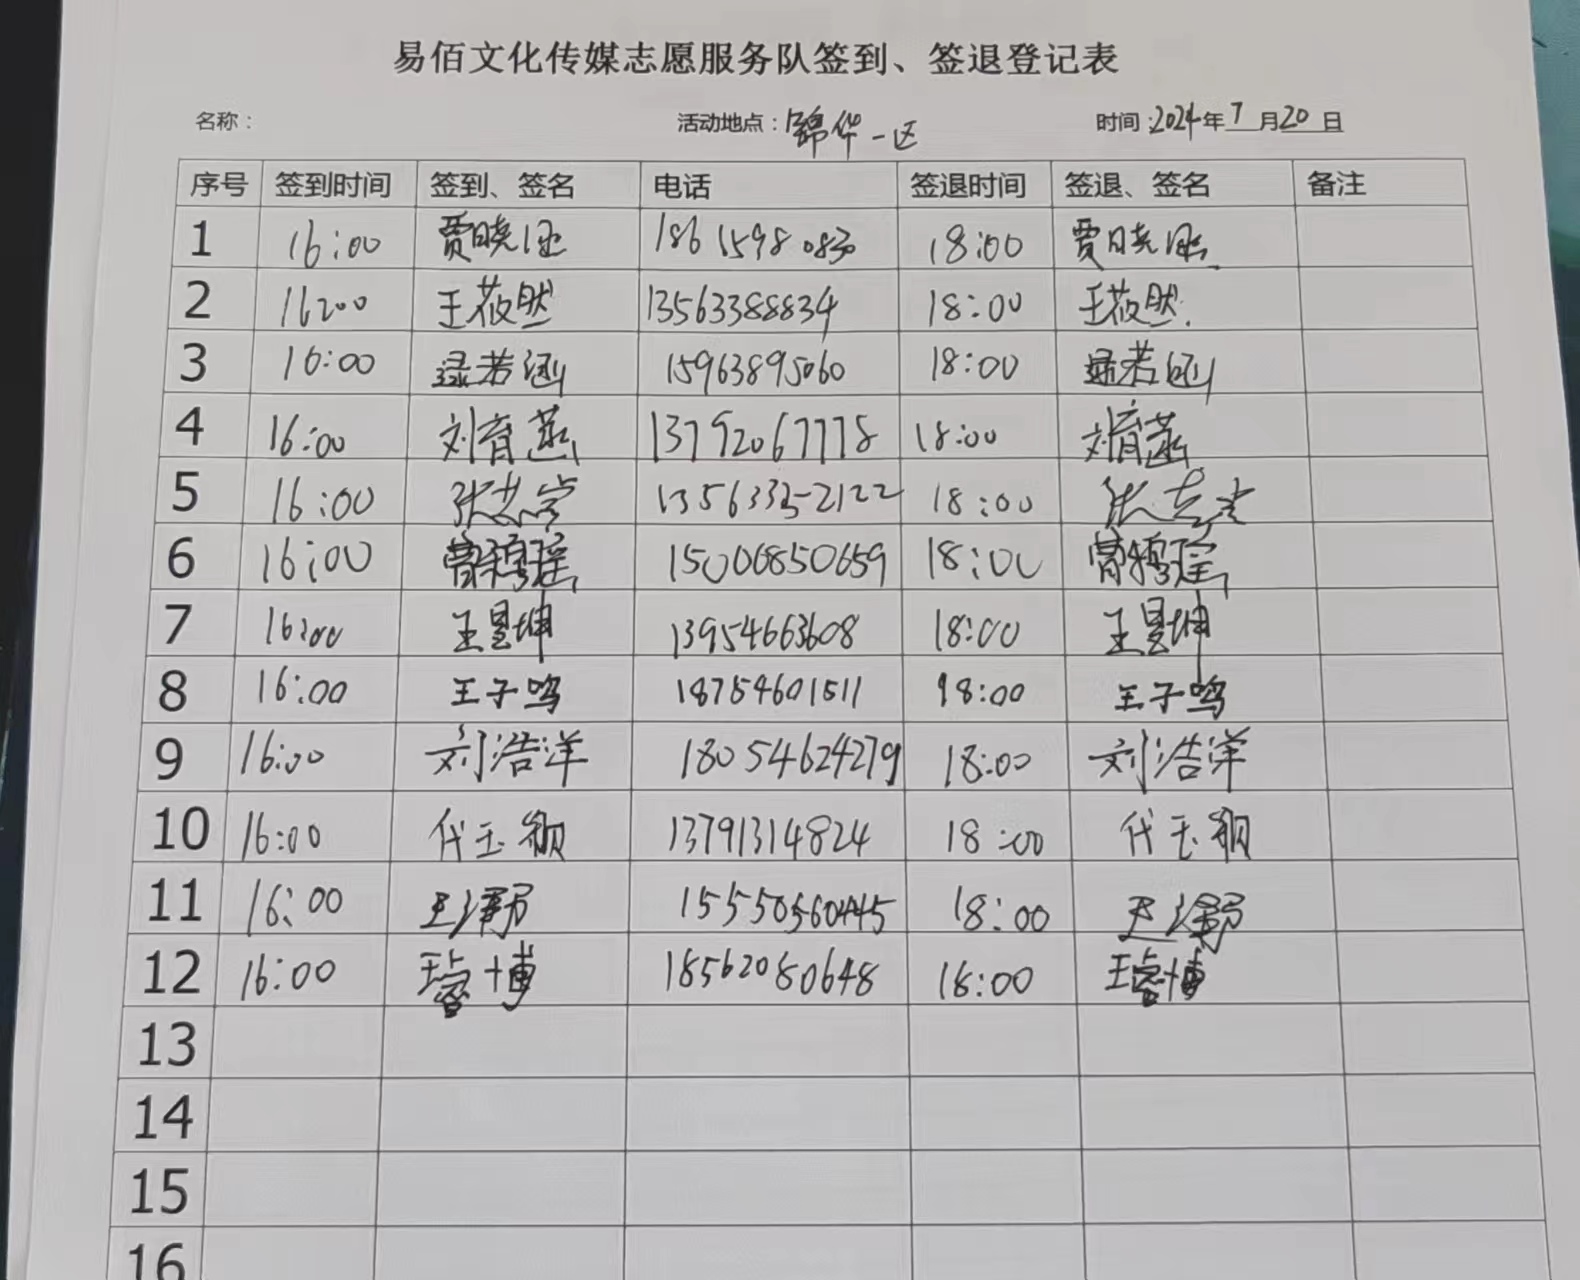 易佰文化传媒志愿服务队签到、签退登记表
名称： 活动地点：锦华一区 时间：2024年7月20日
序号 签到时间 签到、签名 电话 签退时间 签退、签名 备注
1 16:00 贾晓 18615980830 18:00 贾晓
2 16:00 王莜然 13563388834 18:00 王莜然
3 16:00 若涵 15963895060 18:00 若涵
4 16:00 刘育菡 13792067778 18:00 刘育菡
5 16:00 张 13563352122 18:00 张
6 16:00 瑶 15006850659 18:00 瑶
7 16:00 王昱坤 13954663608 18:00 王昱坤
8 16:00 王子鸣 18754601511 18:00 王子鸣
9 16:00 刘浩洋 18054624279 18:00 刘浩洋
10 16:00 代玉颖 13791314824 18:00 代玉颖
11 16:00 15550560445 18:00
12 16:00 王睿博 18562080648 18:00 王睿博
13
14
15
16